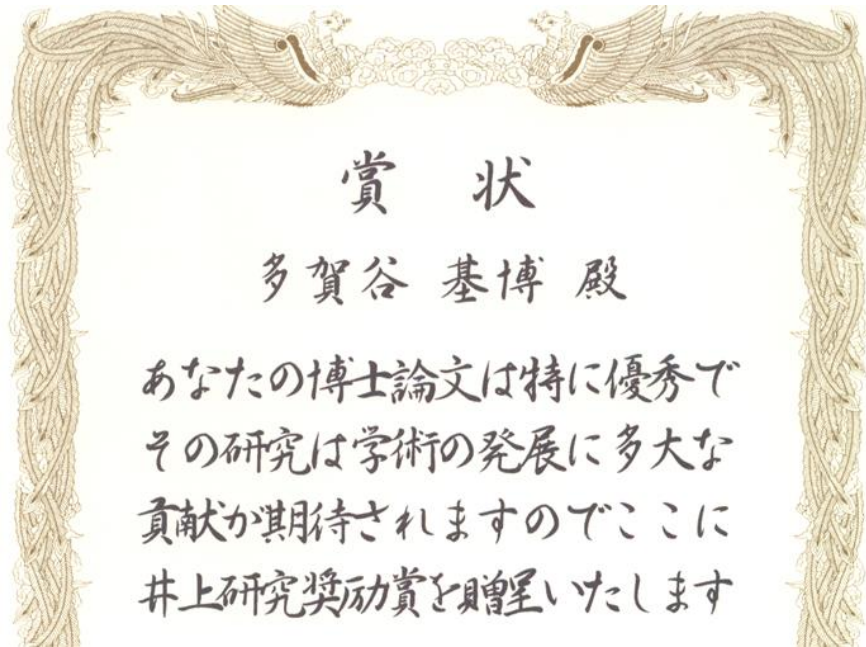 賞 状
多賀谷 基博 殿
あなたの博士論文は特に優秀で
その研究は学術の発展に多大な
貢献が期待されますのでここに
井上研究奨励賞を贈呈いたします